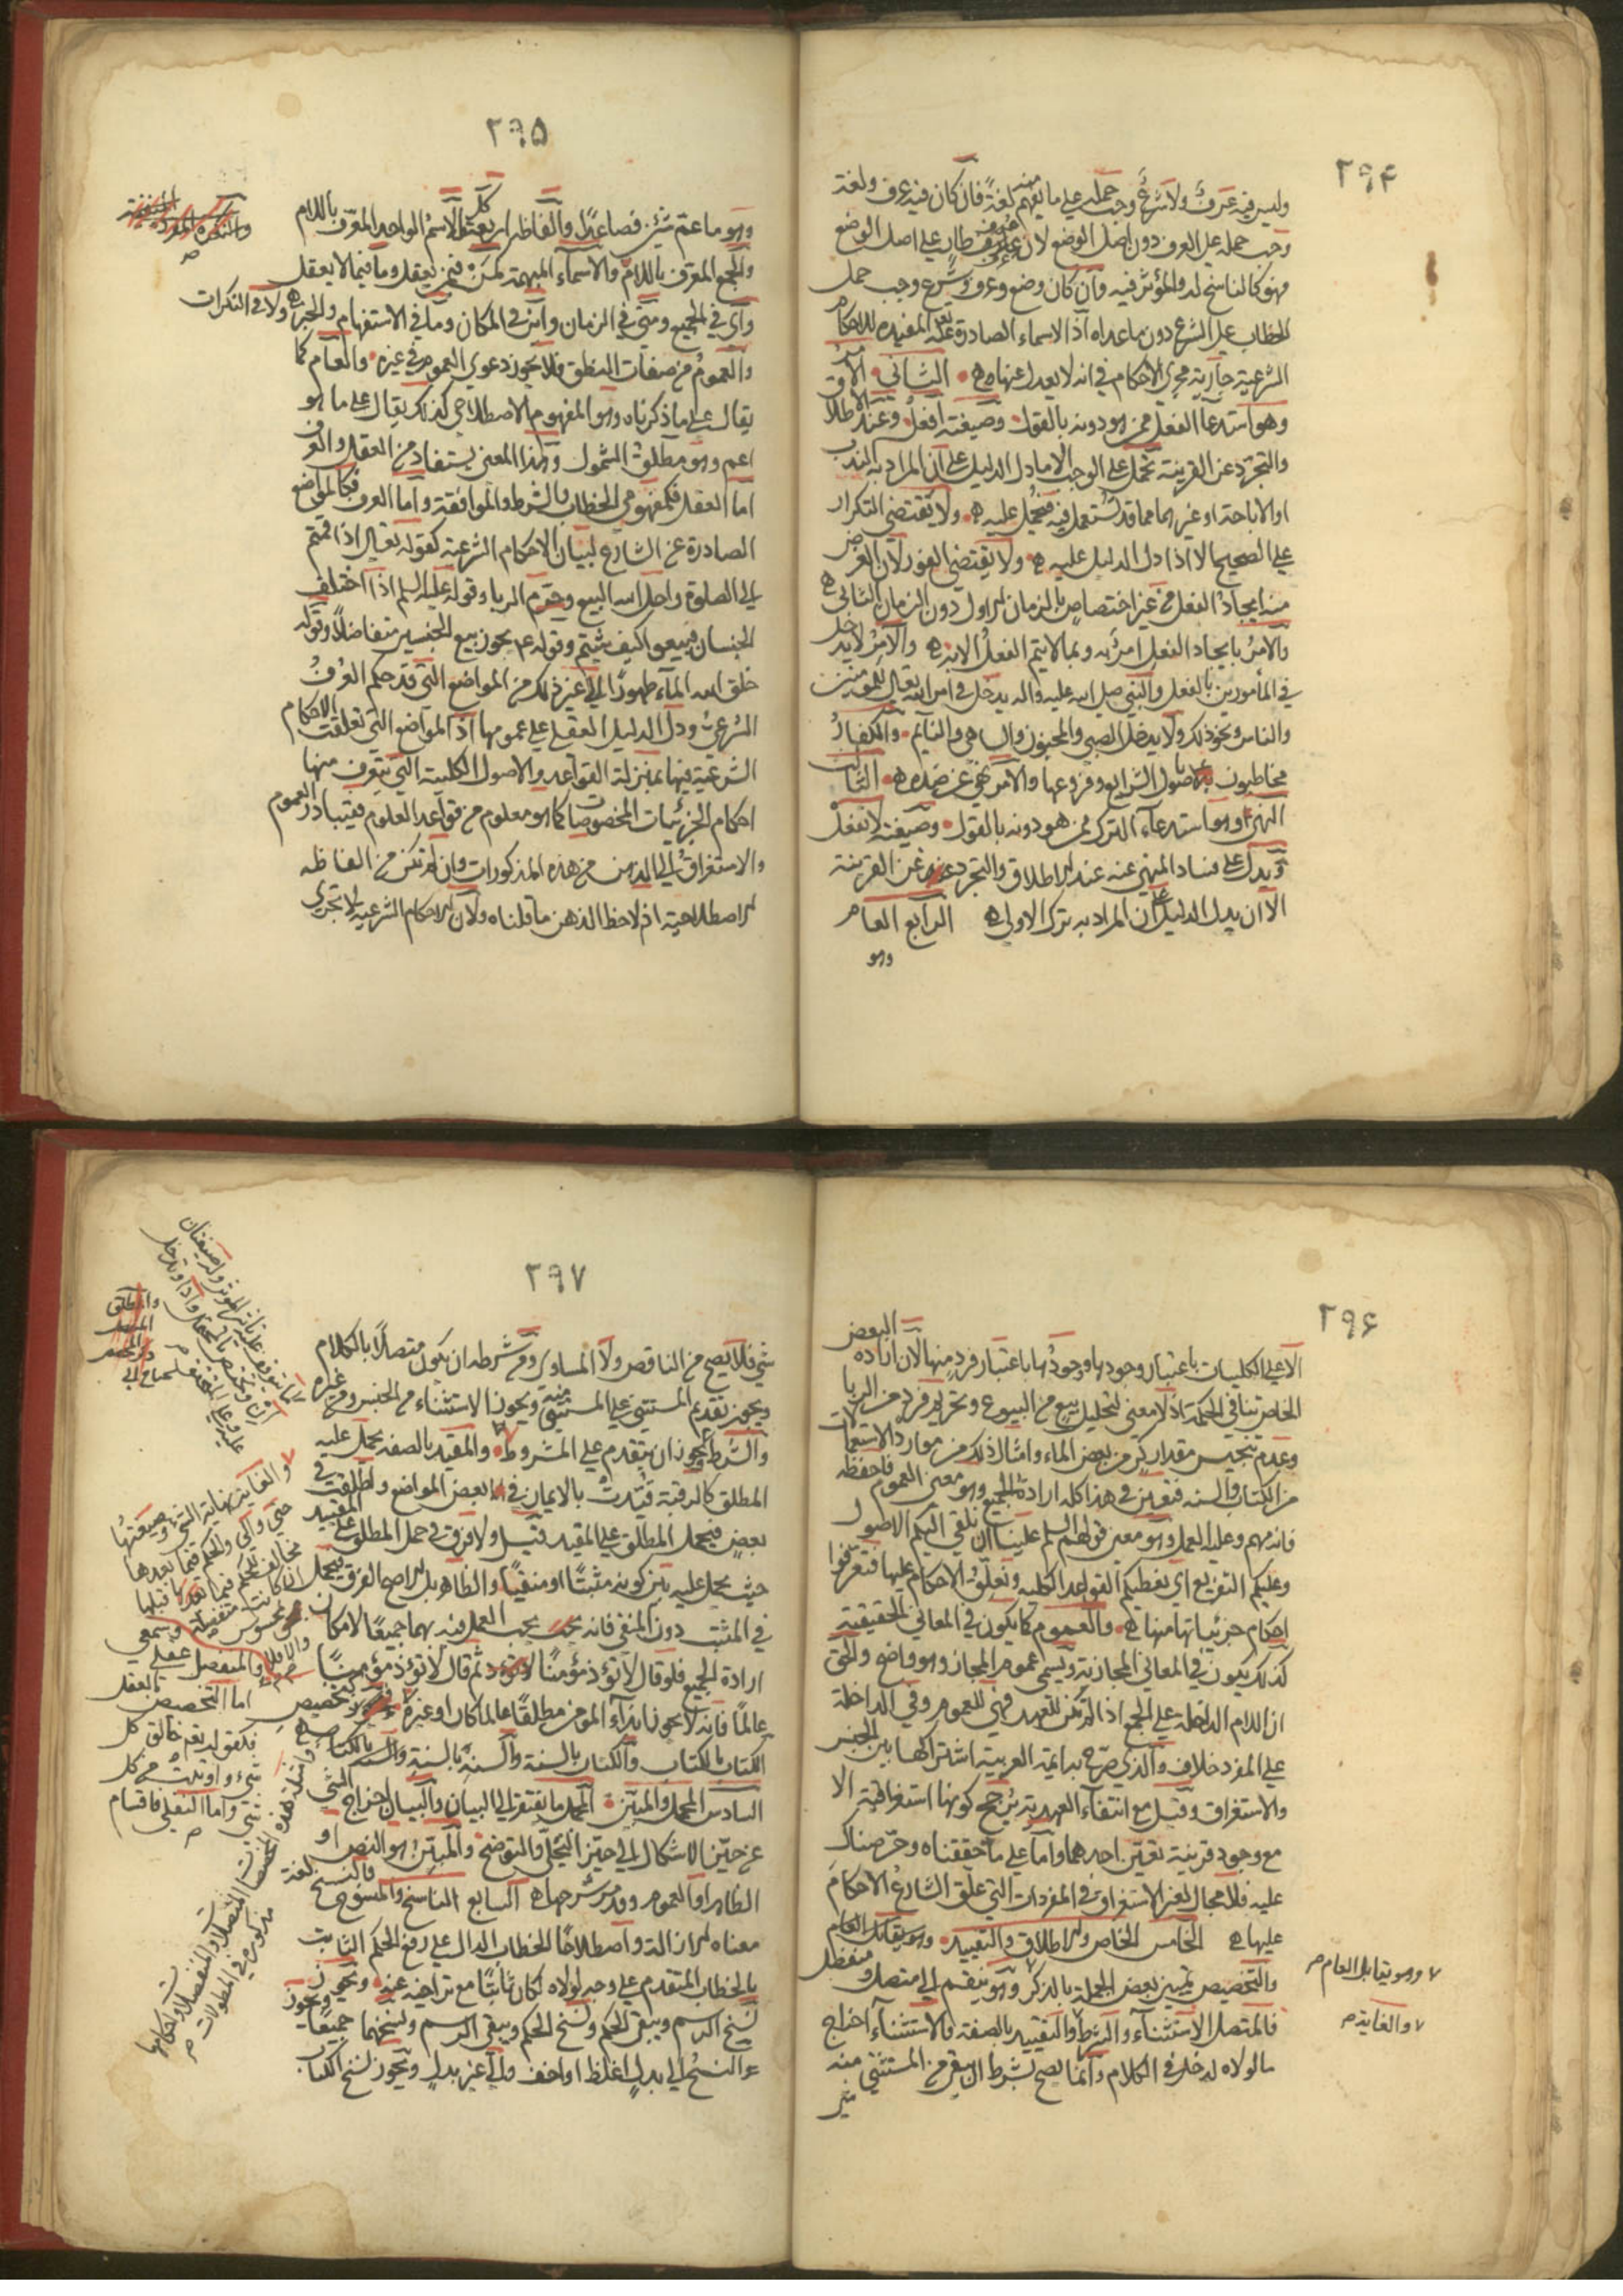 ٢٩۴
وليس فيه عرف ولا شرع وجب حمله على ما يفهم منه لغة فان كان فيه عرف ولغة
وجب حمله على العرف دون اصل الوضع لان العرف طار على اصل الوضع
فهو كالناسخ له والمؤثر فيه وان كان وضع وعرف وشرع وجب حمل
الخطاب على الشرع دون ما عداه اذ الاسماء الصادرة عنه تع المفيده للاحكام
الشرعية جارية مجرى الاحكام في انه لا يعدل عنها الثاني الامر
وهو استدعاء الفعل ممن هو دونه بالقول وصيغته افعل وعند الاطلاق
والتجرد عن القرينة تحمل على الوجوب الا ما دل الدليل على ان المراد به الندب
او الاباحة او غيرهما مما قد تستعمل فيه فيحمل عليه ولا تقتضي التكرار
على الصحيح الا اذا دل الدليل عليه ولا يقتضي الفور لان الغرض
منه ايجاد الفعل من غير اختصاص بالزمان الاول دون الزمان الثاني
والامر بايجاد الفعل امر به وبما لا يتم الفعل الا به والآمر لا يدخل
في المأمورين بالفعل والنبي صلى الله عليه واله يدخل في امر الله تعالى للمؤمنين
والناس ونحو ذلك ولا يدخل الصبي والمجنون والساهي والنايم والكفار
مخاطبون باصول الشرايع وفروعها والامر نهي عن ضده الثالث
النهي وهو استدعاء الترك ممن هو دونه بالقول وصيغته لا تفعل
ويدل على فساد المنهي عنه عند الاطلاق والتجرد عن القرينة
الا ان يدل الدليل على ان المراد به ترك الاولى الرابع العام
وهو
٢٩۵
وهو ما عم شيئين فصاعدا والفاظه اربعة الاسم الواحد المعرف باللام
والجمع المعرف باللام والاسماء المبهمة كمن فيمن يعقل وما فيما لا يعقل
واي في الجميع ومتى في الزمان واين في المكان وما في الاستفهام والخبر ولا في النكرات
والعموم من صفات النطق فلا يجوز دعوى العموم في غيره والعام كما
يقال على ما ذكرناه وهو المفهوم الاصطلاحي كذلك يقال على ما هو
اعم وهو مطلق الشمول وهذا المعنى يستفاد من العقل والعرف
اما العقل فكمفهومي الخطاب والشرط والموافقة واما العرف فكالمواضع
الصادرة عن الشارع لبيان الاحكام الشرعية كقوله تعالى اذا قمتم
الى الصلوة واحل الله البيع وحرم الربا وقوله عليه السلم اذا اختلف
الجنسان فبيعوا كيف شئتم وقوله ع يجوز بيع الجنسين متفاضلا وقوله
خلق الله الماء طهورا الى غير ذلك من المواضع التي قد حكم العرف
الشرعي ودل الدليل العقلي على عمومها اذ المواضع التي تعلقت الاحكام
الشرعية فيها بمنزلة القواعد والاصول الكلية التي يتعرف منها
احكام الجزئيات المخصوصات كما هو معلوم من قواعد العلوم فيتبادر العموم
والاستغراق الى الذهن من هذه المذكورات وان لم تكن من الفاظه
الاصطلاحية اذ لاحظ الذهن ما قلناه ولان الاحكام الشرعية لا تجري
٢٩۶
الا على الكليات باعتبار وجودها ووجودها باعتبار فرد منها لان ارادة البعض
الخاص تنافي الحكمة اذ لا معنى لتحليل بيع من البيوع وتحريم فرد من الربا
وعدم تنجيس مقدار كر من بعض الماء وامثال ذلك من موارد الاستعمالات
من الكتاب والسنه فتعين في هذا كله ارادة الجميع وهو معنى العموم فاحفظه
فانه مهم وعليه العمل وهو معنى قولهم السلم علينا ان نلقي اليكم الاصول
وعليكم التفريع اي نعطيكم القواعد الكليه وتعلق الاحكام عليها فتعرفوا
احكام جزئياتها منها والعموم كما يكون في المعاني الحقيقية
كذلك يكون في المعاني المجازية ويسمى عموم المجاز وهو واضح والحق
ان اللام الداخلة على الجمع اذا لم تكن للعهد فهي للعموم وفي الداخلة
على المفرد خلاف والذي صرح به ائمة العربية اشتراكها بين الجنس
والاستغراق وقيل مع انتفاء العهدية يترجح كونها استغراقية الا
مع وجود قرينة تعين احدهما واما على ما حققناه وحرصناك
عليه فلا مجال لغير الاستغراق في المفردات التي علق الشارع الاحكام
عليها الخامس الخاص والاطلاق والتقييد وهو يقابل العام
والتخصيص تمييز بعض الجملة بالذكر وهو ينقسم الى متصل ومنفصل
فالمتصل الاستثناء والشرط والتقييد بالصفة فالاستثناء اخراج
ما لولاه لدخل في الكلام وانما يصح بشرط ان يبقى من المستثنى منه
شئ
وهو يقابل العام م
والغاية م
٢٩٧
شئ فلا يصح من الناقص ولا المساوي ومن شرطه ان يكون متصلا بالكلام
ويجوز تقديم المستثنى على المستثنى منه ويجوز الاستثناء من الجنس ومن غيره
والشرط يجوز ان يتقدم على المشروط والمقيد بالصفه يحمل عليه
المطلق كالرقبة قيدت بالايمان في بعض المواضع واطلقت في
بعض فيحمل المطلق على المقيد قيل ولا فرق في حمل المطلق على المقيد
حيث يحمل عليه بين كونه مثبتا او منفيا والظاهر بل الاصح الفرق فيحمل
في المثبت دون المنفي فانه يجب العمل فيه بهما جميعا لامكان
ارادة الجميع فلو قال لا تؤذ مؤمنا ثم قال لا تؤذ مؤمنا
عالما فانه لا يجوز ايذاء المؤمن مطلقا عالما كان او غيره تخصيص
الكتاب بالكتاب والكتاب بالسنة والسنة بالسنة والسنة بالكتاب
السادس المجمل والمبين المجمل ما يفتقر الى البيان والبيان اخراج الشئ
عن حيز الاشكال الى حيز التجلي والتوضح والمبين هو النص او
الظاهر او العموم وقد مر شرحها السابع الناسخ والمنسوخ فالنسخ لغة
معناه الازالة واصطلاحا الخطاب الدال على رفع الحكم الثابت
بالخطاب المتقدم على وجه لولاه لكان ثابتا مع تراخيه عنه ويجوز
نسخ الرسم ويبقى الحكم ونسخ الحكم ويبقى الرسم ونسخهما جميعا
والنسخ الى بدل اغلظ او اخف والى غير بدل ويجوز نسخ الكتاب
والغاية نهاية الشئ وصيغتها
حتى والى والحكم فيما بعدها
مخالف للحكم فيما قبلها
والمنفصل عقلي وسمعي
اما التخصيص بالعقل
فكقوله تعم خالق كل
شئ واوتيت من كل
شئ واما النقلي فاقسام